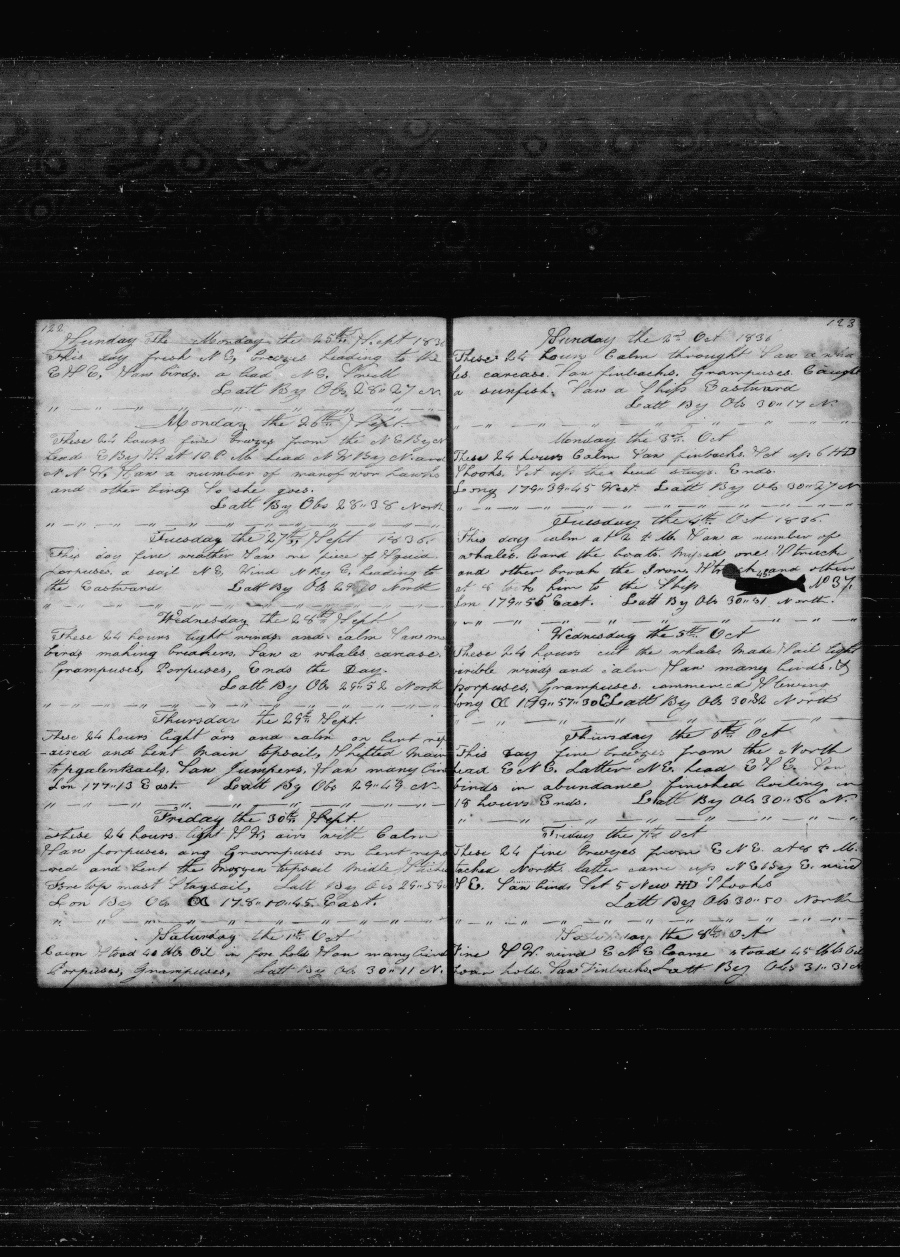 122
Sunday the Monday the 25th Sept 1836
This day fresh N E, breezes heading to the
E S E, Saw birds. a bad N E, Swell
Latt By Obs 28"27 N.
Monday the 26th Sept.
These 24 hours fine breezes from the N E By N
head E By S. at 10 P. M. head N W By N. and
N N W, Saw a number of manof war hawks
and other birds So she goes.
Latt By Obs 28"38 North
Tuesday the 27th Sept 1836.
This day fine weather Saw one piece of Squid
porpuses, a sail N E, Wind N By E heading to
the Eastward Latt By Ob North
Wednesday the 28th Sept
These 24 hours light winds and calm Saw
birds making breakers, Saw a whales carcase.
Grampuses, Porpuses, Ends the Day.
Latt By Obs 29"52 North
Thursdar the 29th Sept.
These 24 hours light ars and calm on bent rep
-aired and bent main topsail, Shifted main
topgalentsails, Saw Jumpers. Saw many birds
Lon 177"13 East. Latt By Obs 29"49 N.
Friday the 30th Sept.
These 24 hours. light S W, airs with Calm
Saw porpuses. ang Grampuses on bent repa
-red and bent the topsail midle Stitched
Fore top mast Staysail, Latt By Obs 29"59
Lon By Ob 178"10"45 East.
Saturday the 1th Oct
Calm Stood 40 bbs Oil in fore hold Saw many birds
Porpuses, Grampuses, Latt By Ob 30"11 N.
123
Sunday the 2d Oct 1836
These 24 hours Calm throught Saw a wha
les carcase. Saw finbacks, Grampuses. Caught
a sunfish. Saw a Ship Eastward
Latt By Ob 30"17 N.
Monday the 3th Oct
These 24 hours Calm Saw finbacks. Set up 6 HD
Shooks. Set up the head stays. Ends.
Long 179"39"45 West Latt By Ob 30"27 N
Tuesday the 4th Oct 1836.
This day calm at 2 P. M. Saw a number of
whales. Lowd the boats, missed one Struck
and other broak the Iron, Struck and other
at took him to the Ship 45 No 37.
Lon 179"56 East. Latt By Ob 30"31 North.
Wednesday the 5th Oct
These 24 hours cut the whales made Sail light
winds and calm Saw many birds. &
porpuses, Grampuses. commenced Stewing
Long 179"57"30 E Latt By Ob 30"32 North
Thursday the 6th Oct
This day fine breezes from the North
head E N E. Latter N E. head E S E. Saw
birds in abundance finished boiling in
18 hours Ends. Latt By Ob 30"36 N.
Friday the 7th Oct
These 24 fine breezes from E N E. at 8 P. M.
tacked North latter came up N E By E. wind
S E. Saw birds Set 5 New HD Shooks
Latt By Obs 30"50 North
Saturday the 8th Oct
Fine S W. wind E N E Coarse stoad 45 bbls Oil
lower hold. Saw Finbacks. Latt By Obs 31"31 N